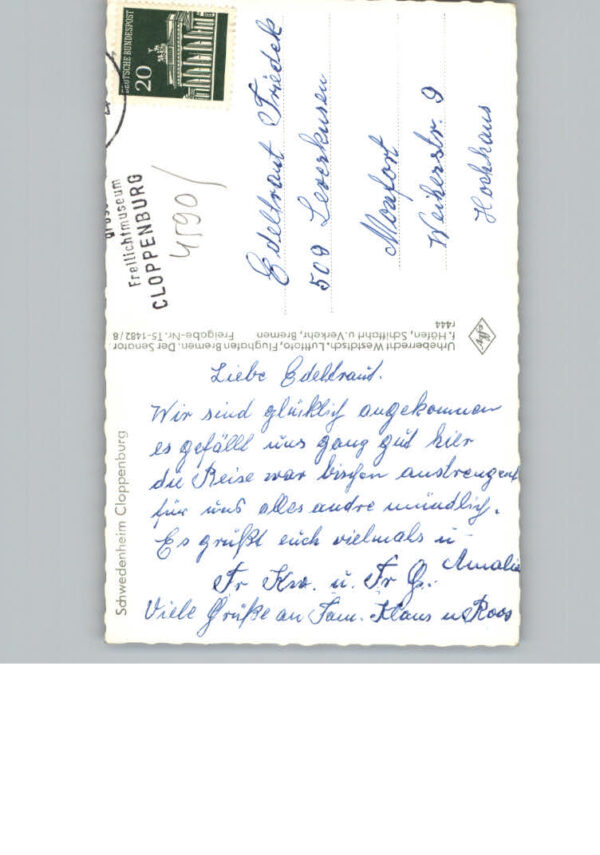 DEUTSCHE BUNDESPOST
20
Freilichtmuseum
CLOPPENBURG
4590/
Edeltraut Friedek
509 Leverkusen
Monfort
Weiherstr. 9
Hochhaus
Urheberrecht Westdtsch. Luftfoto, Flughafen Bremen. Der Senator
f. Häfen, Schiffahrt u. Verkehr, Bremen Freigabe-Nr. TS-1482/8
r444
Schwedenheim Cloppenburg
Liebe Edeltraut.
Wir sind glücklich angekommen
es gefällt uns ganz gut hier
die Reise war bischen anstrengent
für uns alles andre mündlich.
Es grüßt euch vielmals u
Amalie
Fr Kw. u. Fr G.
Viele Grüße an Fam. Klaus u Roos